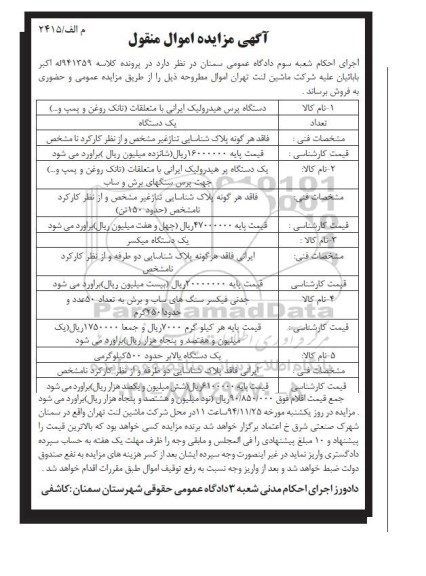 م الف/۲۴۱۵
آگهی مزایده اموال منقول
اجرای احکام شعبه سوم دادگاه عمومی سمنان در نظر دارد در پرونده کلاسه ۹۴۱۳۵۹له اکبر
بابائیان علیه شرکت ماشین لنت تهران اموال مطروحه ذیل را از طریق مزایده عمومی و حضوری
به فروش برساند .
۱-نام کالا دستگاه پرس هیدرولیک ایرانی با متعلقات (تانک روغن و پمپ و...)
تعداد یک دستگاه
مشخصات فنی : فاقد هر گونه پلاک شناسایی نمره مشخص و از نظر کارکرد نا مشخص
قیمت کارشناسی : قیمت پایه ۱۶۰۰۰۰۰۰ریال(شانزده میلیون ریال )براورد می شود
۲-نام کالا: یک دستگاه پر هیدرولیک ایرانی با متعلقات (تانک روغن و پمپ و...)
جهت پرس سنگهای برش و ساب
مشخصات فنی: فاقد هر گونه پلاک شناسایی مشخص و از نظر کارکرد
نامشخص (حدود ۱۵۰تن)
قیمت کارشناسی : قیمت پایه ۴۷۰۰۰۰۰۰ریال (چهل و هفت میلیون ریال)براورد می شود
۳-نام کالا : یک دستگاه میکسر
مشخصات فنی: ایرانی فاقد هرگونه پلاک شناسایی دو طرفه و از نظر کارکرد
نامشخص
قیمت کارشناسی قیمت پایه ۲۰۰۰۰۰۰۰ریال (بیست میلیون ریال)براورد می شود
۴-نام کالا چدنی فیکسر سنگ های ساب و برش به تعداد ۵۰عدد و
حدودا ۲۵۰کرم
قیمت کارشناسی: قیمت پایه هر کیلو گرم ۷۰۰۰ریال و جمعا ۱۷۵۰۰۰۰ریال(یک
میلیون و هفتصد و پنجاه هزار ریال)براورد می شود
۵-نام کالا: یک دستگاه بالابر حدود ۵۰۰کیلوگرمی
مشخصات فنی : ایرانی فاقد پلاک شناسایی دو طرفه و از نظر کارکرد نامشخص
قیمت کارشناسی قیمت پایه ۶۱۰۰۰۰۰ریال(شش میلیون و یکصد هزار ریال)براورد می شود
جمع قیمت اقلام فوق ۹۰/۸۵۰/۰۰۰ریال (نود میلیون و هشتصد و پنجاه هزار ریال)براورد می شود
. مزایده در روز یکشنبه مورخه ۹۴/۱۱/۲۵ساعت ۱۱در محل شرکت ماشین لنت تهران واقع در سمنان
شهرک صنعتی شرق خ اعتماد برگزار خواهد شد برنده مزایده کسی خواهد بود که بالاترین قیمت را
پیشنهاد و ۱۰ مبلغ پیشنهادی را فی المجلس و مابقی وجه را ظرف مهلت یک هفته به حساب سپرده
دادگستری واریز نماید در غیر اینصورت وجه سپرده ایشان بعد از کسر هزینه های مزایده به نفع صندوق
دولت ضبط خواهد شد و بعد از واریز وجه نسبت به رفع توقیف اموال طبق مقررات اقدام خواهد شد .
دادورز اجرای احکام مدنی شعبه ۳دادگاه عمومی حقوقی شهرستان سمنان :کاشفی